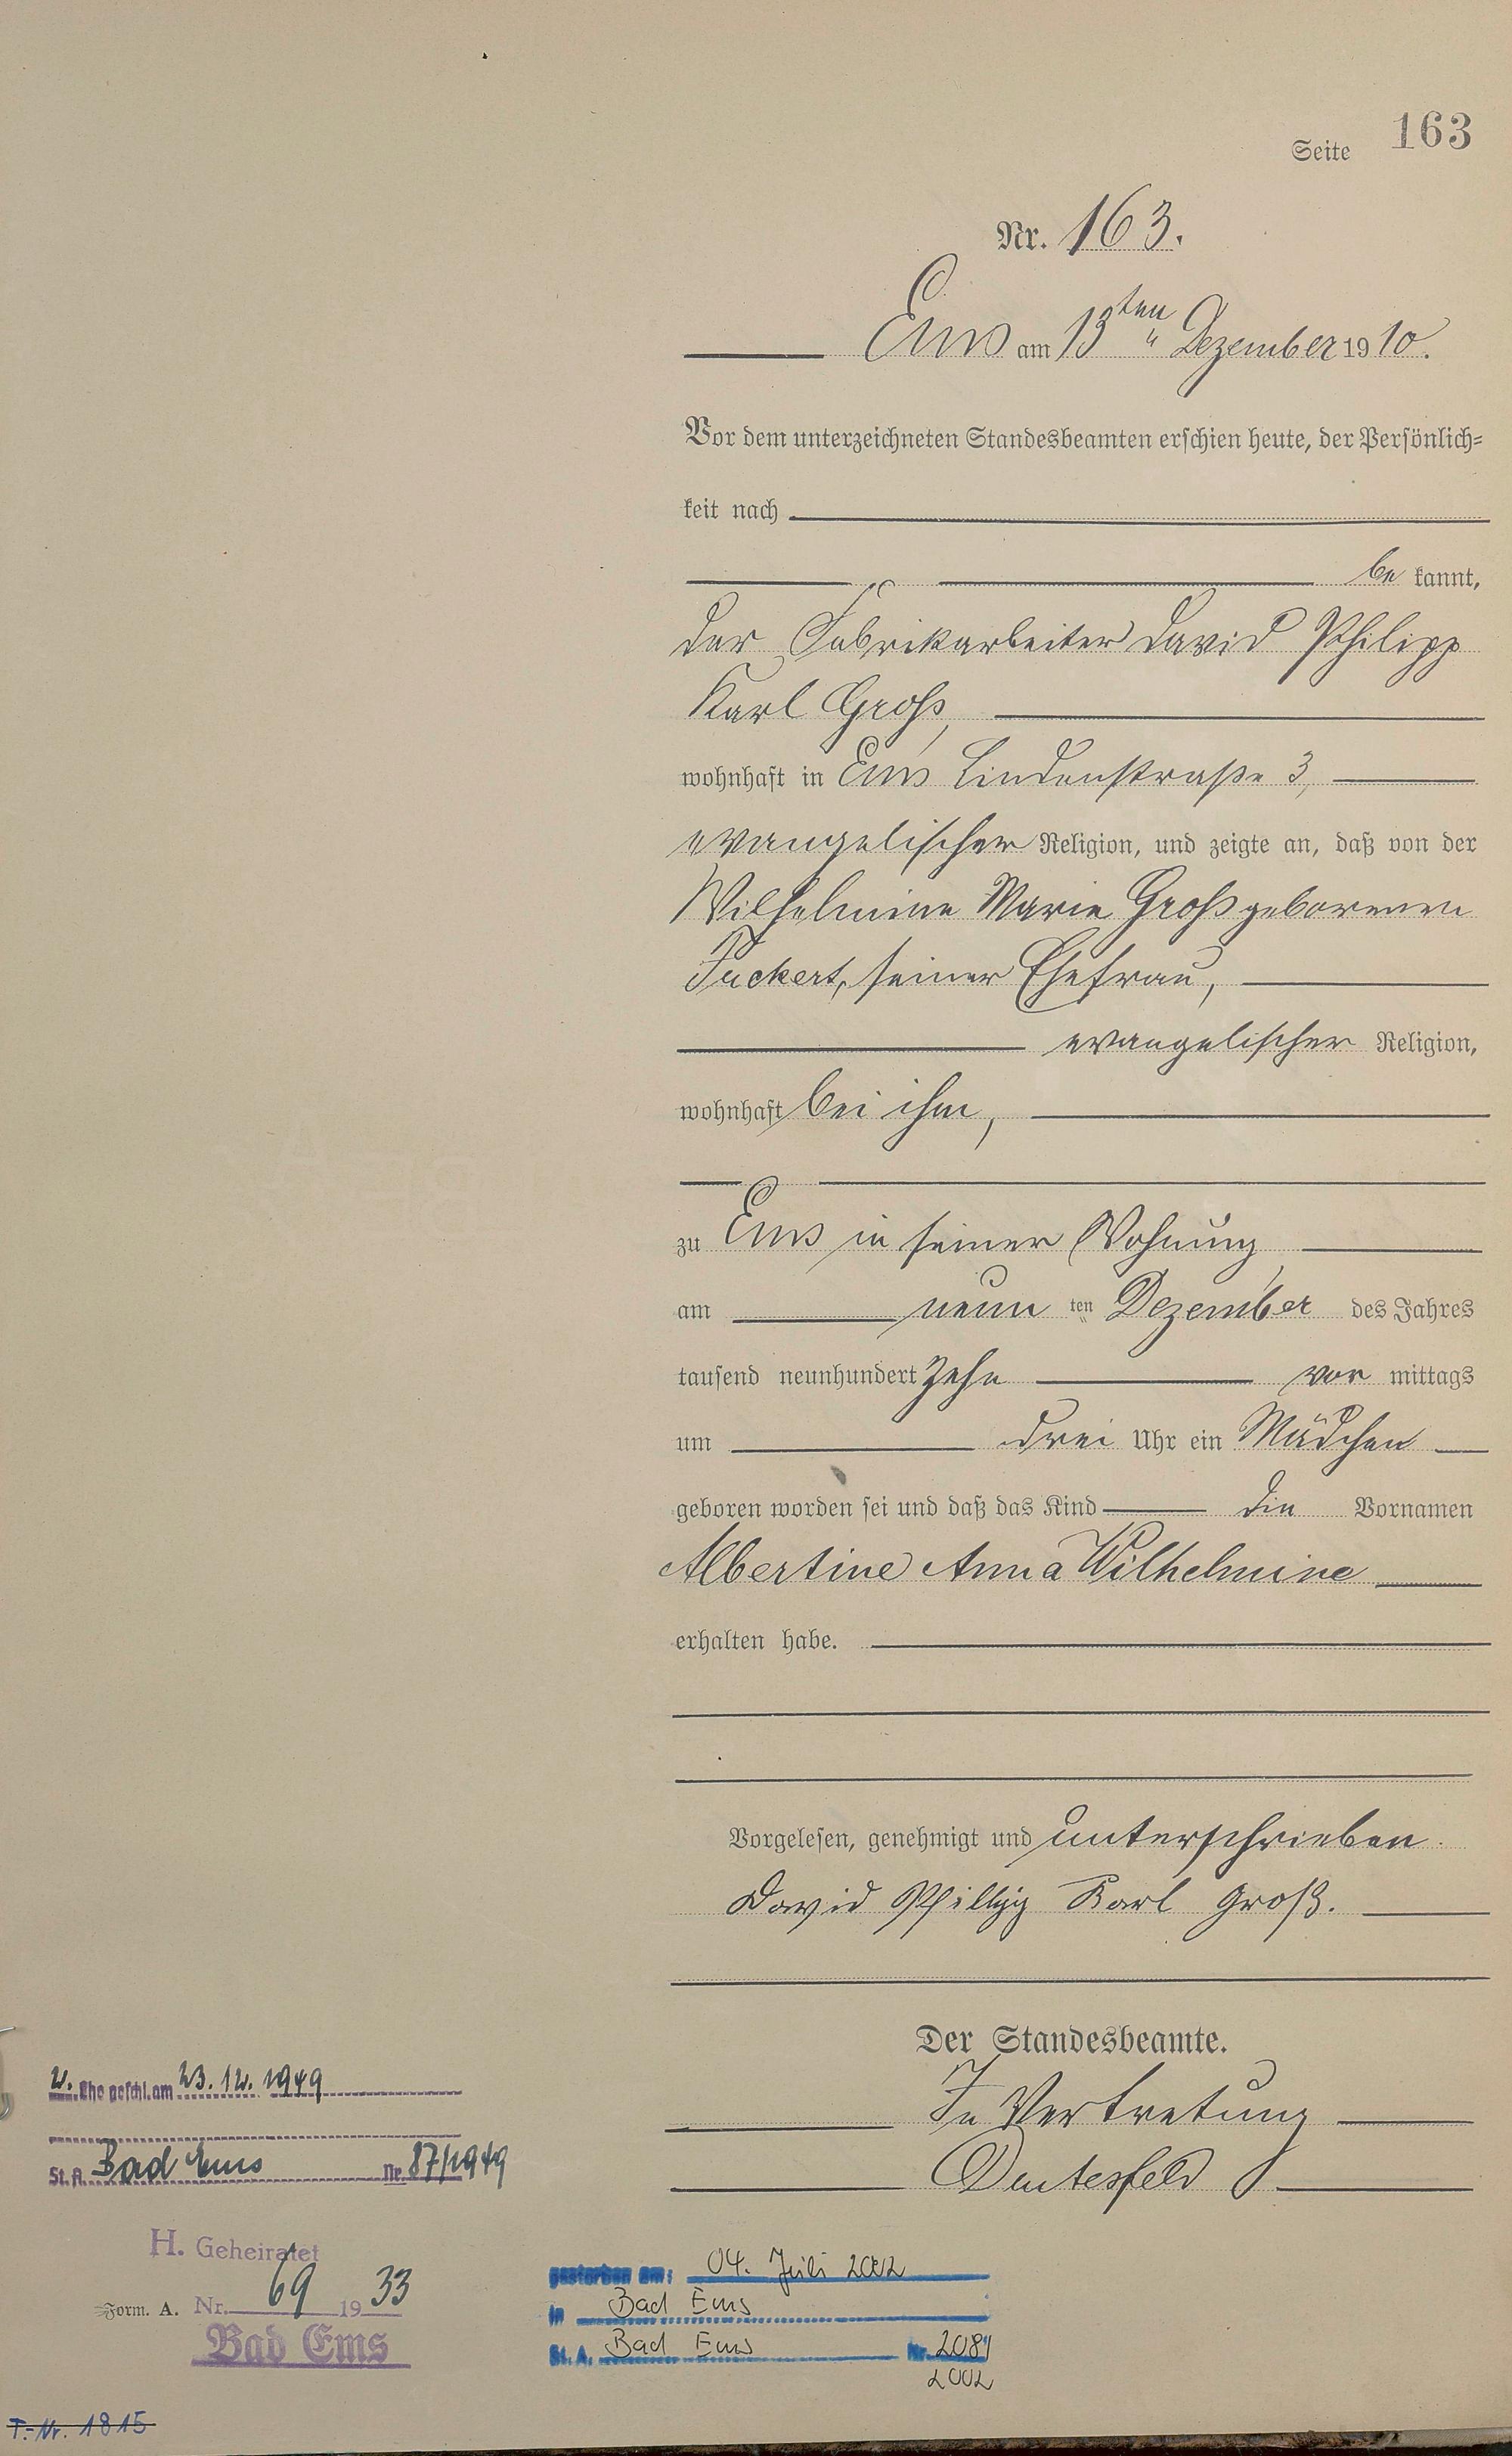 Seite 163
Nr. 163.
Ems am 13ten Dezember 1910.
Vor dem unterzeichneten Standesbeamten erschien heute, der Persönlich-
keit nach
be kannt,
der Fabrikarbeiter David Philipp
Karl Groß,
wohnhaft in Ems Lindenstraße 3,
evangelischer Religion, und zeigte an, daß von der
Wilhelmine Marie Groß geborenen
Tuckert, seiner Ehefrau,
evangelischer Religion,
wohnhaft bei ihm,
zu Ems in seiner Wohnung
am neun ten Dezember des Jahres
tausend neunhundert zehn vor mittags
um drei Uhr ein Mädchen
geboren worden sei und daß das Kind die Vornamen
Albertine Anna Wilhelmine
erhalten habe.
Vorgelesen, genehmigt und unterschrieben.
David Philipp Karl Groß.
Der Standesbeamte.
In Vertretung
2. Ehe geschl. am 23.12.1949
St. A. Bad Ems Nr. 87/1949
H. Geheiratet
Form. A. Nr. 69 1933
Bad Ems
gestorben am: 04. Juli 2002
in Bad Ems
St. A. Bad Ems Nr. 208/
2002
T.-Nr. 1815